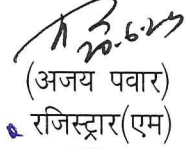 20.6.24
(अजय पवार)
रजिस्ट्रार(एम)